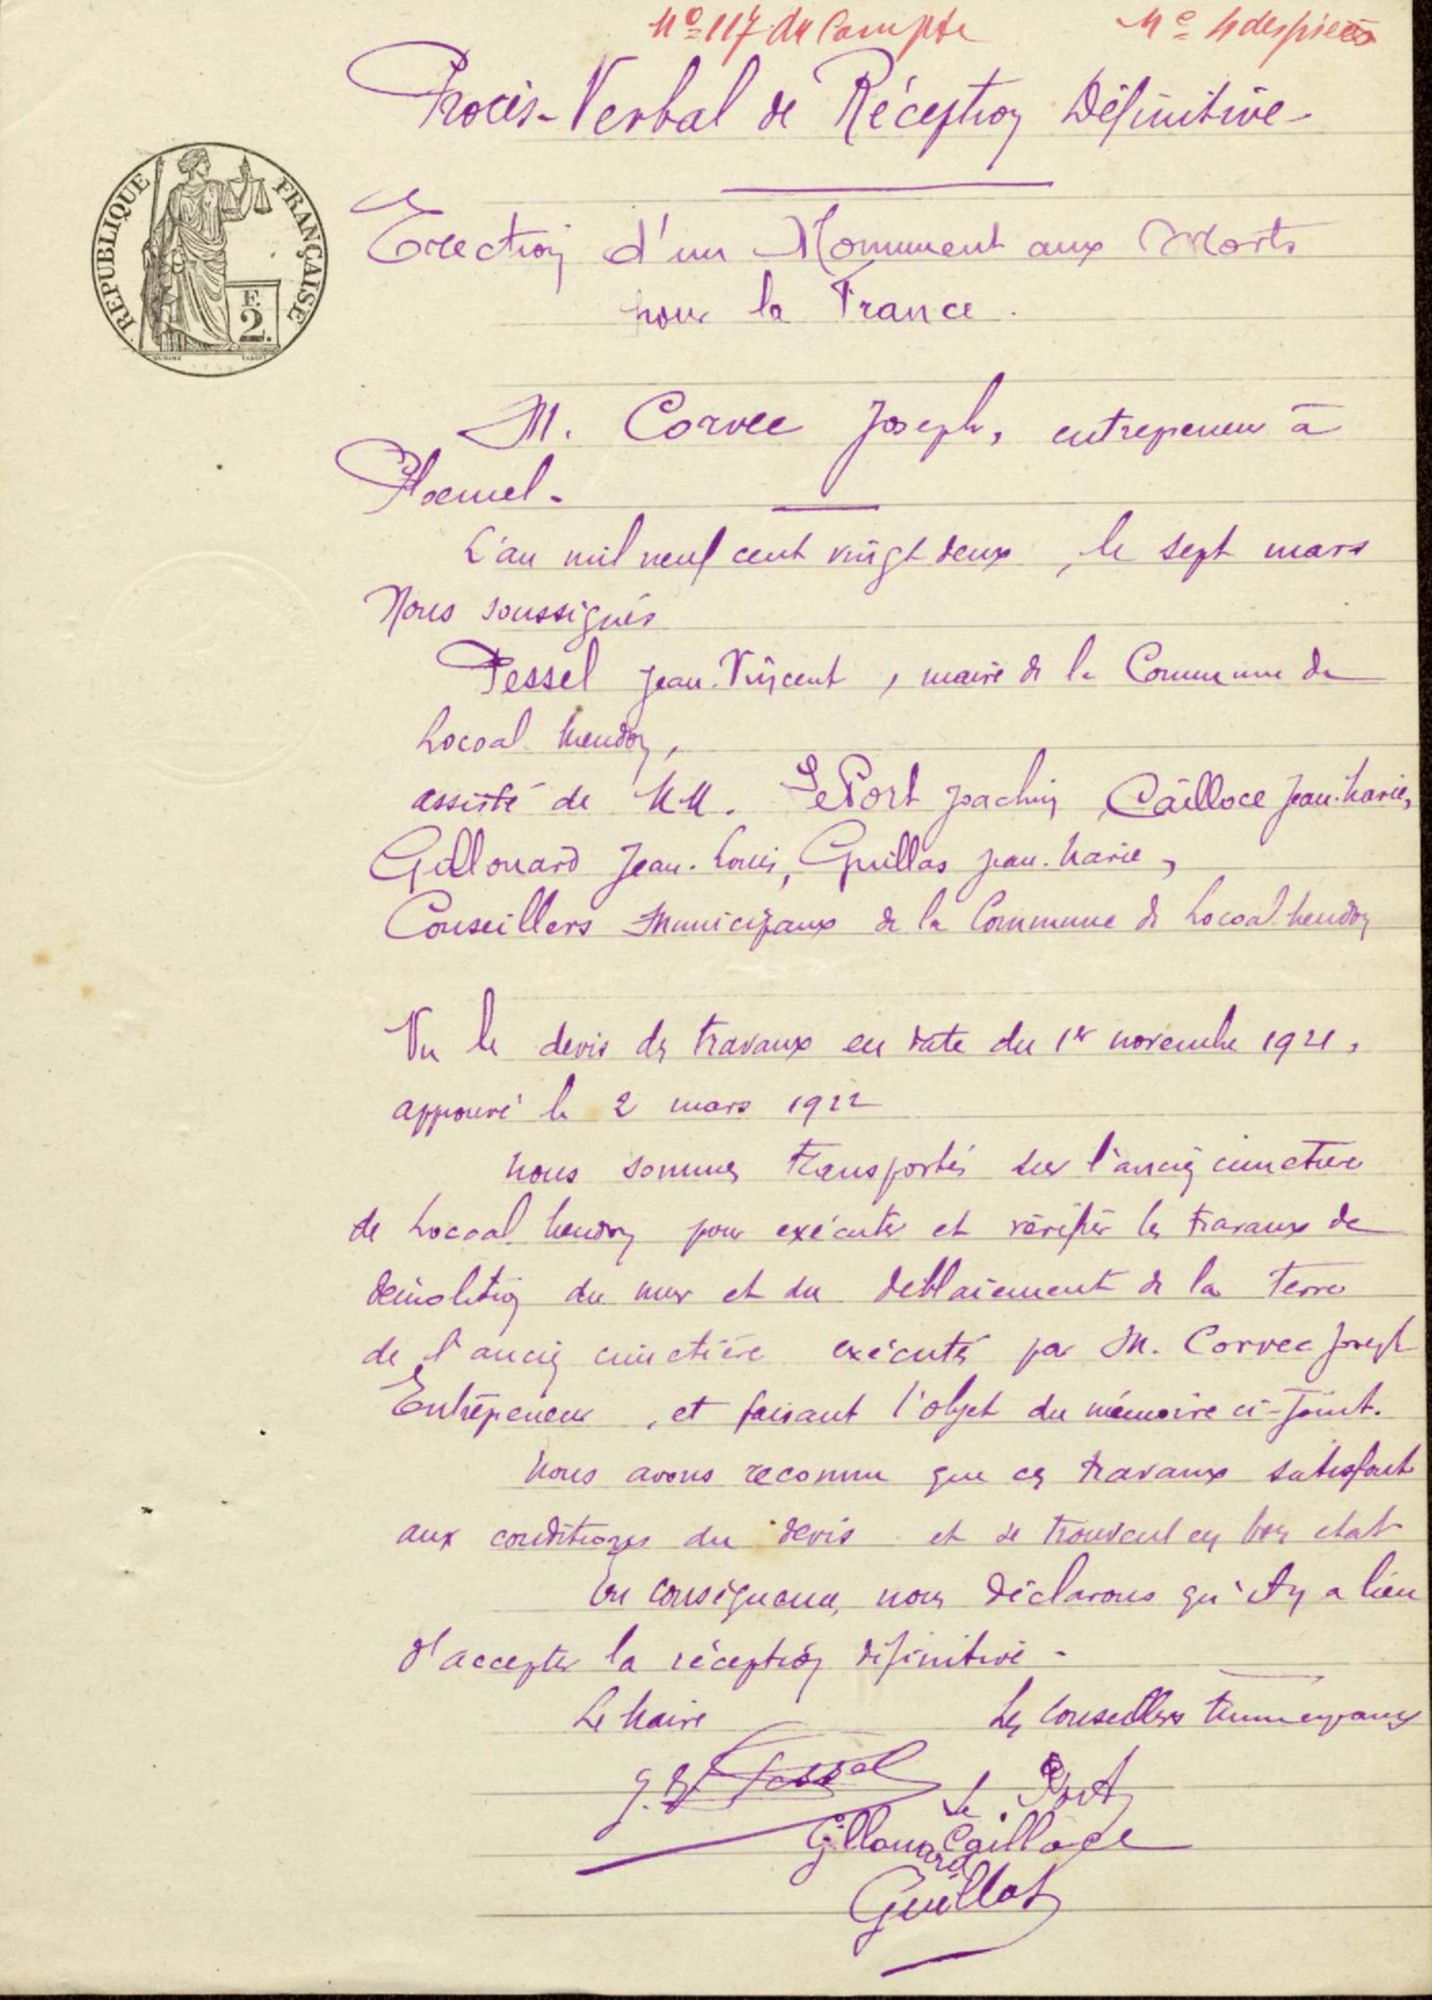 Nº 117 du Compte Nº 4 des pièces
Procès-Verbal de Réception Définitive
RÉPUBLIQUE FRANÇAISE
F.
2.
Erection d'un Monument aux Morts
pour la France.
M. Corvec Joseph, entrepeneur à
Ploemel.
L'an mil neuf cent vingt deux, le sept mars
Nous soussignés
Pessel Jean-Vincent, maire de la Commune de
Locoal-Mendon,
assisté de MM. Le Port Joachim, Cailloce Jean-Marie,
Gillouard Jean-Louis, Guillas Jean-Marie,
Conseillers Municipaux de la Commune de Locoal-Mendon
Vu le devis des travaux en date du 1er novembre 1921,
approuvé le 2 mars 1922
nous sommes transportés sur l'ancien cimetière
de Locoal-Mendon pour exécuter et vérifier les travaux de
démolition du mur et du déblaiement de la terre
de l'ancien cimetière exécutés par M. Corvec Joseph
Entrepeneur, et faisant l'objet du mémoire ci-joint.
Nous avons reconnu que ces travaux satisfont
aux conditions du devis et se trouvent en bon état
En conséquence, nous déclarons qu'il y a lieu
d'accepter la réception définitive.
Le Maire Les Conseillers Municipaux
Pessel Le Port
Gillouard Cailloce
Guillas